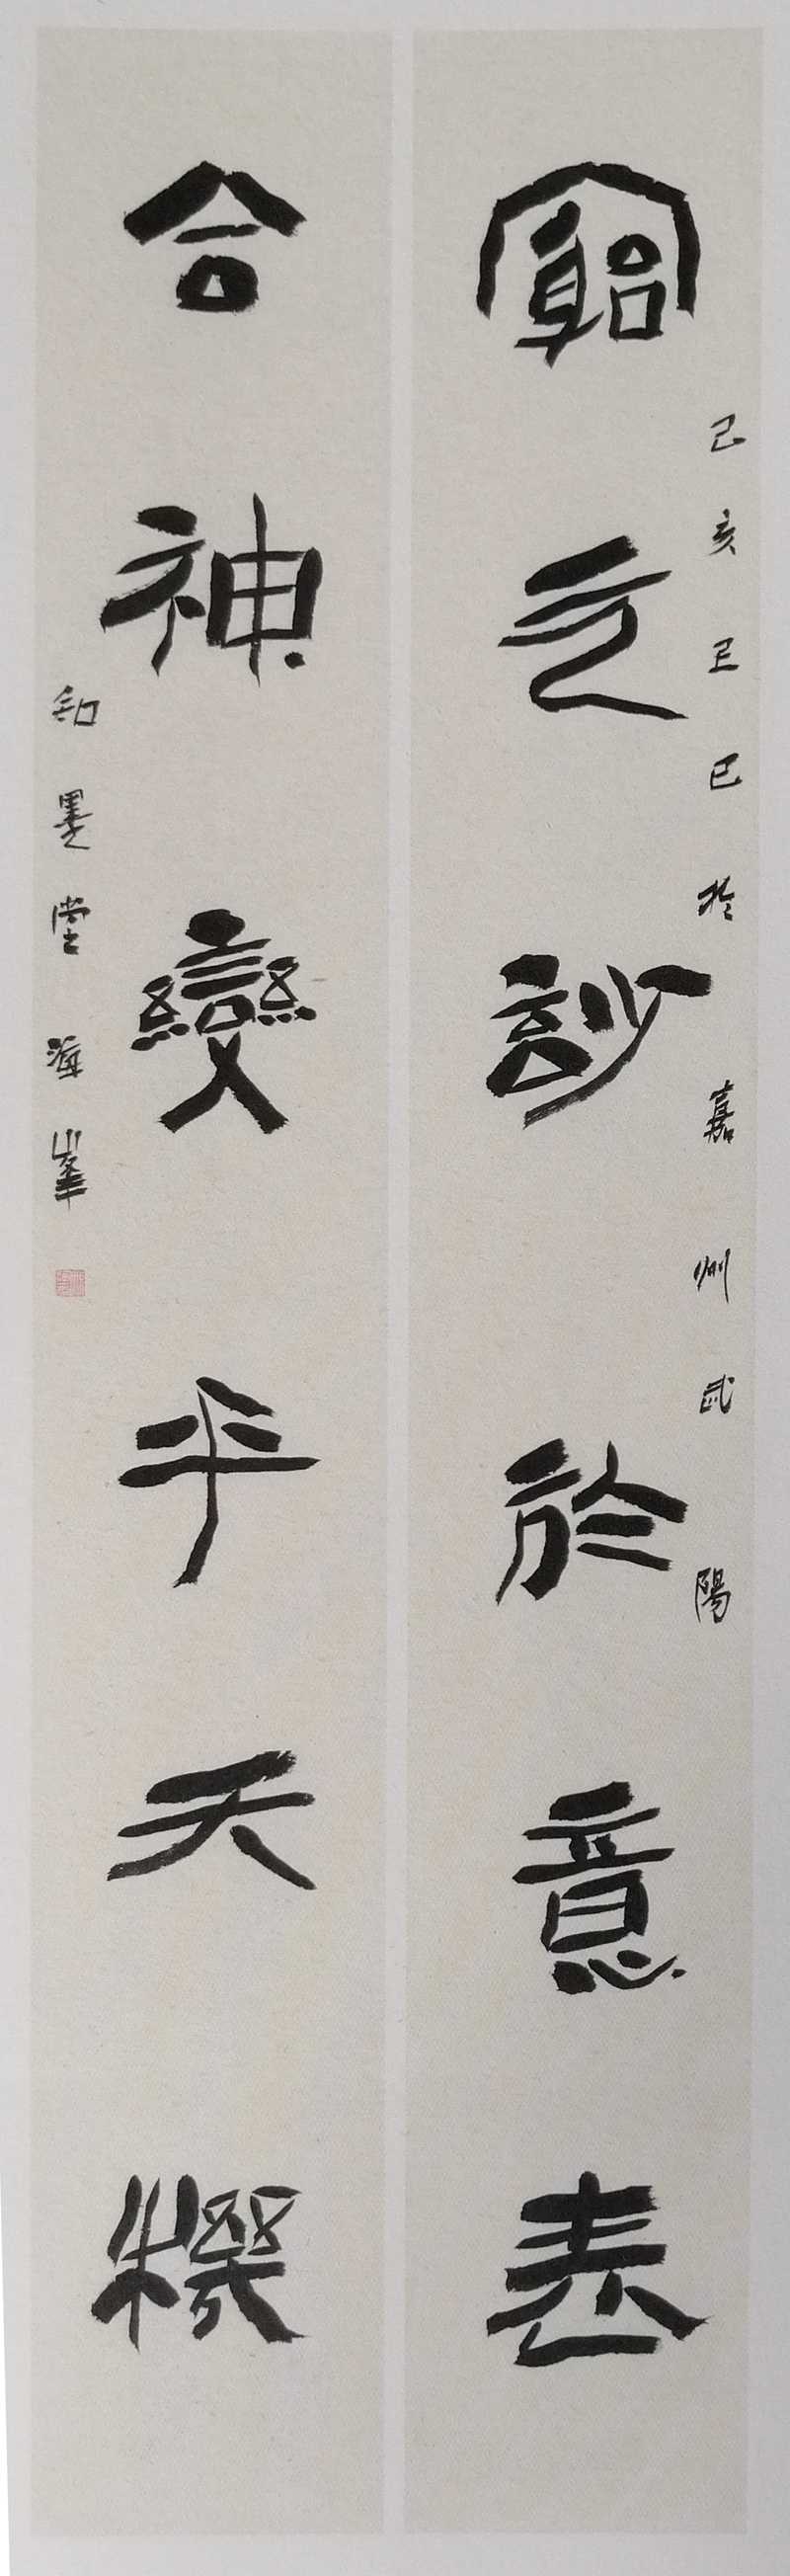 窮玄玅於意表
己亥 巳於嘉州武陽
合神變乎天機
知墨堂海峯